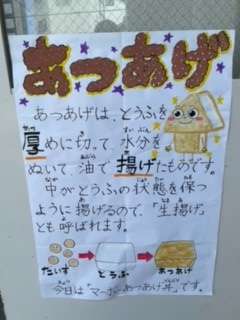 あつあげ
あつあげは、とうふを
厚めに切って、水分を
ぬいて、油で揚げたものです。
中がとうふの状態を保つ
ように揚げるので、「生揚げ」
とも呼ばれます。
だいず
とうふ
あつあげ
今日は「マーボーあつあげ丼」です。